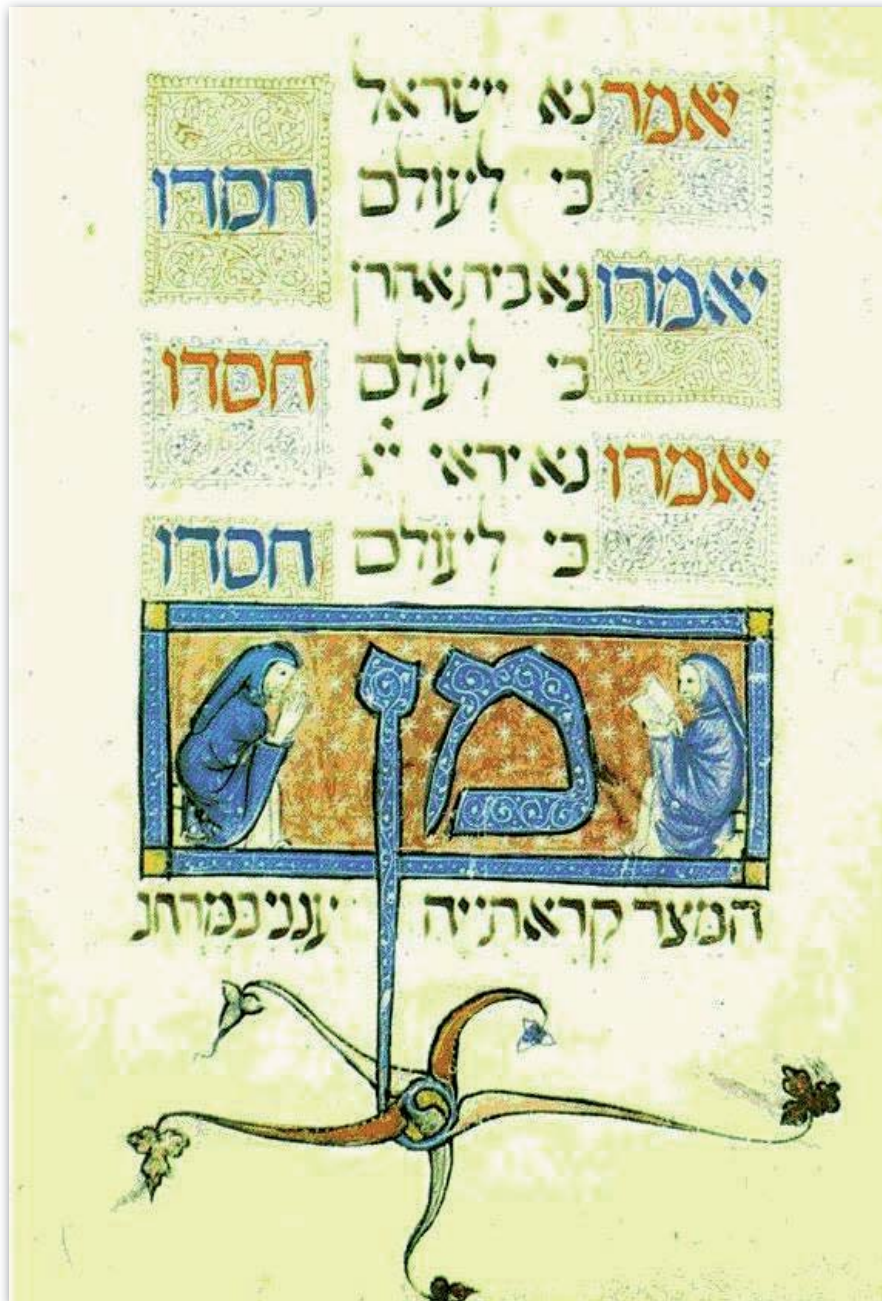 יאמר נא ישראל
כי לעולם חסדו
יאמרו נא בית אהרן
כי לעולם חסדו
יאמרו נא יראי יי
כי לעולם חסדו
מן
המצר קראתי יה ענני במרחב